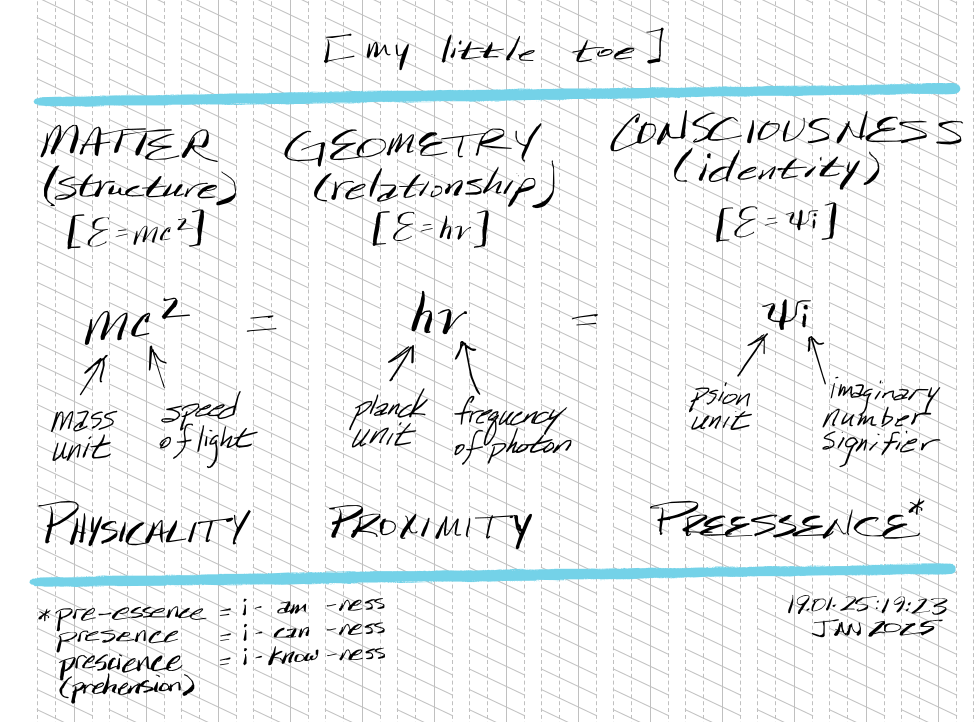 [my little toe]
MATTER GEOMETRY CONSCIOUSNESS
(structure) (relationship) (identity)
[E=mc²] [E=hν] [E=Ψi]
mc² = hν = Ψi
mass unit speed of light planck unit frequency of photon psion unit imaginary number signifier
PHYSICALITY PROXIMITY PREESSENCE*
*pre-essence = i-am-ness
presence = i-can-ness
prescience = i-know-ness
(prehension)
19.01.25:19:23
JAN 2025